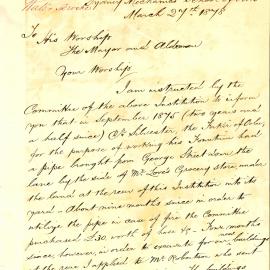 Sydney Mechanics School of Arts
March 27th 1878
To His Worship
The Mayor and Aldermen
Your Worship
I am instructed by the
Committee of the above Institution to inform
you that in September 1875 (two years and
a half since) Mr Silvester, the
for the purpose of working his Fountain had
a pipe brought from George Street down the
lane by the side of Mr Love's Grocery store, under
the land at the rear of this Institution into its
yard - About nine months since in order to
utilize the pipe in case of fire the Committee
purchased £30 worth of hose &c - Four months
since, however, in order to excavate for our buildings
at the rear I applied to Mr Robertson who sent
the buildings